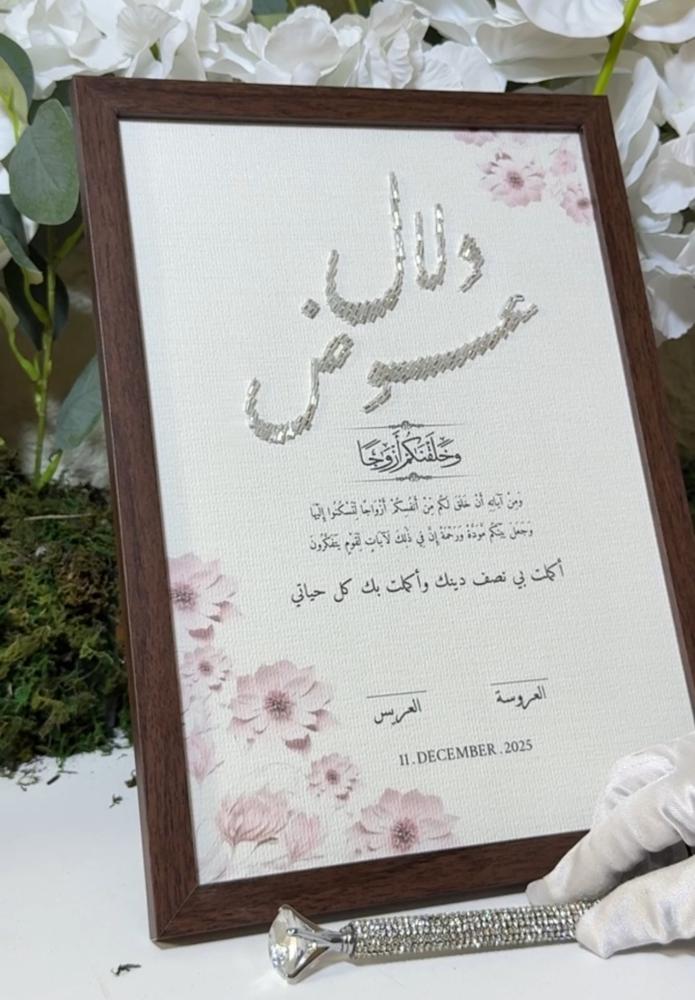 دلال
عوض
وَخَلَقْنَكُمْ أَزْوَجًا
وَمِنْ آيَاتِهِ أَنْ خَلَقَ لَكُم مِّنْ أَنفُسِكُمْ أَزْوَاجًا لِّتَسْكُنُوا إِلَيْهَا
وَجَعَلَ بَيْنَكُم مَّوَدَّةً وَرَحْمَةً إِنَّ فِي ذَٰلِكَ لَآيَاتٍ لِّقَوْمٍ يَتَفَكَّرُونَ
أكملت بي نصف دينك وأكملت بك كل حياتي
العروسة العريس
11.DECEMBER.2025